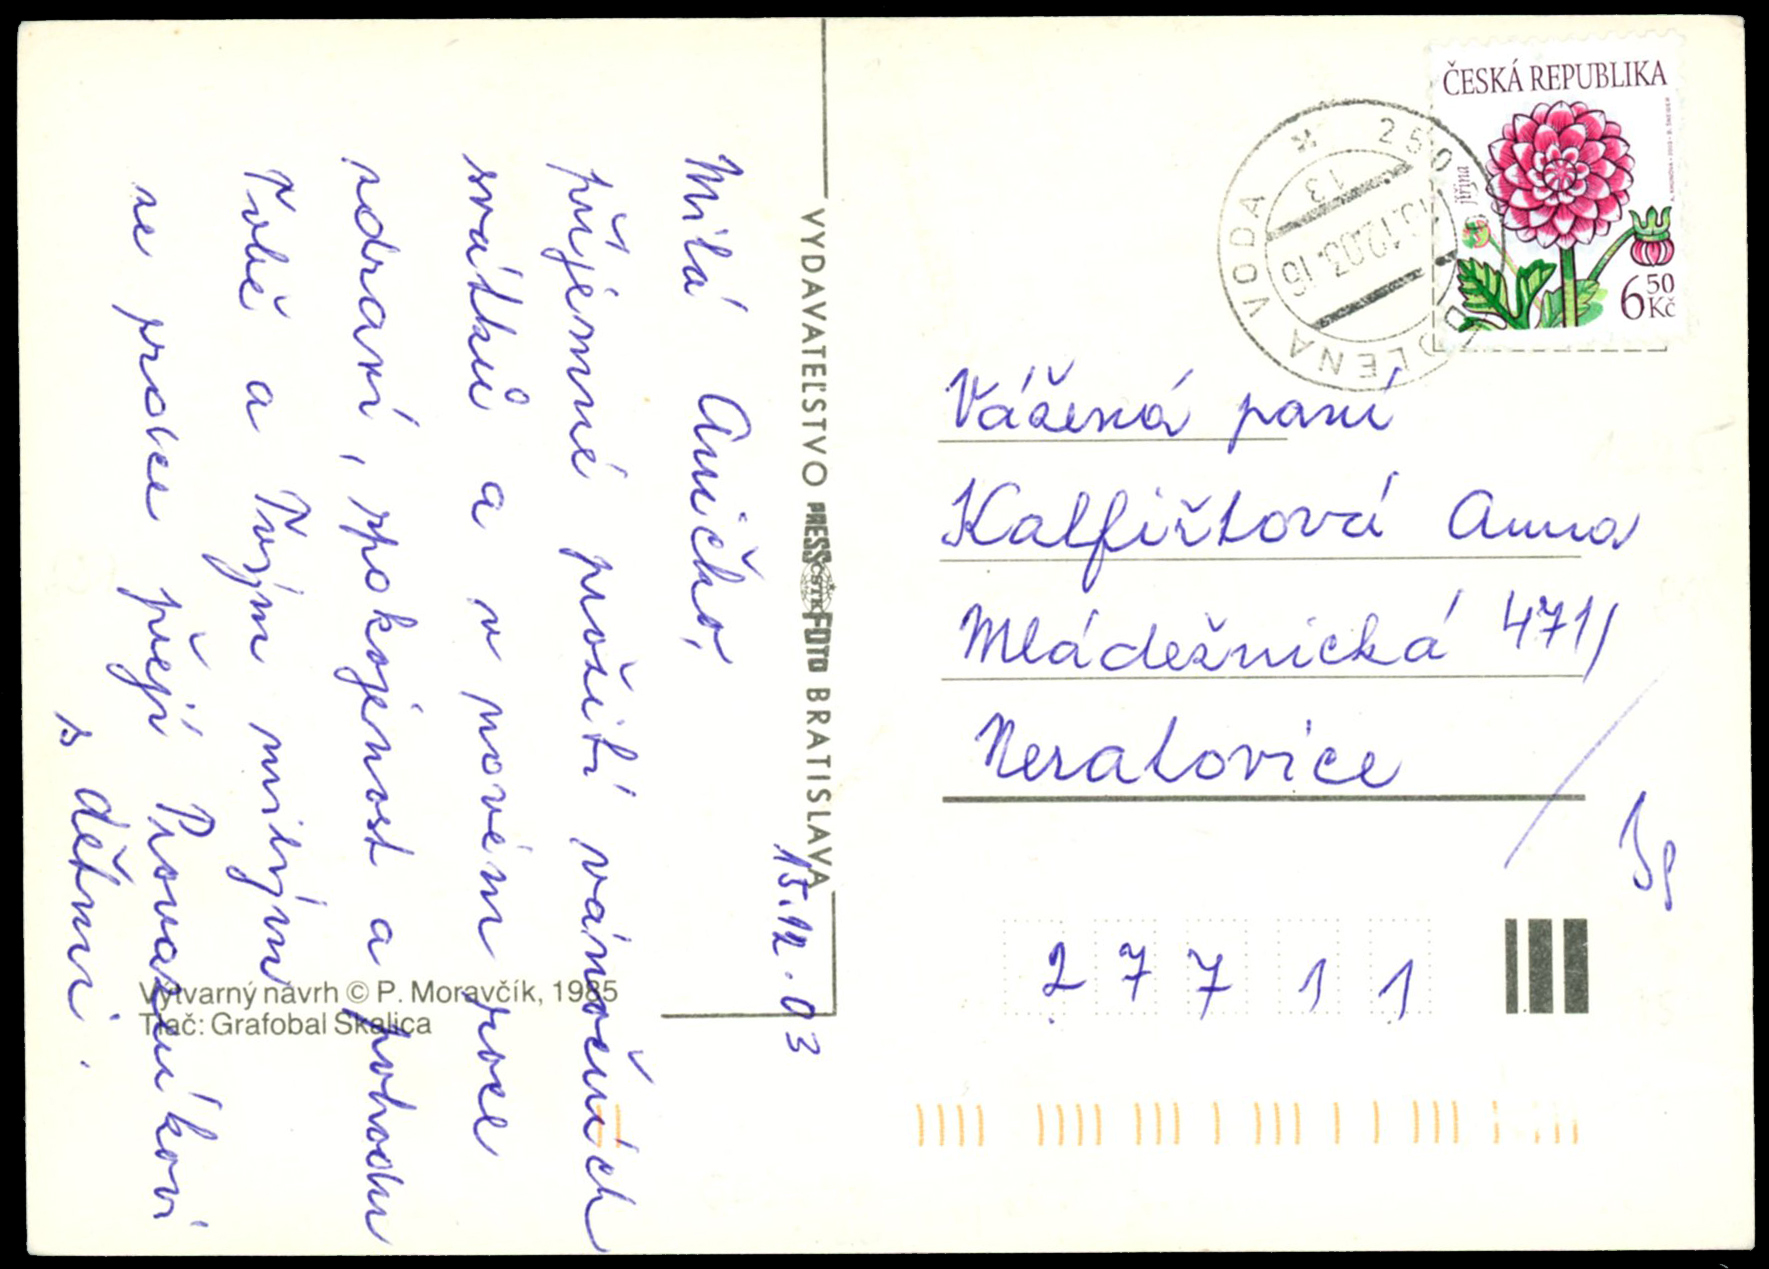 Milá Aničko,
příjemné prožití vánočních
svátků a v novém roce
zdraví, spokojenost a pohodu
Tobě a Tvým milým
ze srdce přejí Provazníkovi
s dětmi.
15.12.03
VYDAVATEĽSTVO PRESSFOTO BRATISLAVA
ČSTK
Výtvarný návrh © P. Moravčík, 1985
Tlač: Grafobal Skalica
ČESKÁ REPUBLIKA
Jiřina
6 50 Kč
250
LENA VODA
Vážená paní
Kalfiřtová Anna
Mládežnická 471/
Neratovice
277 11